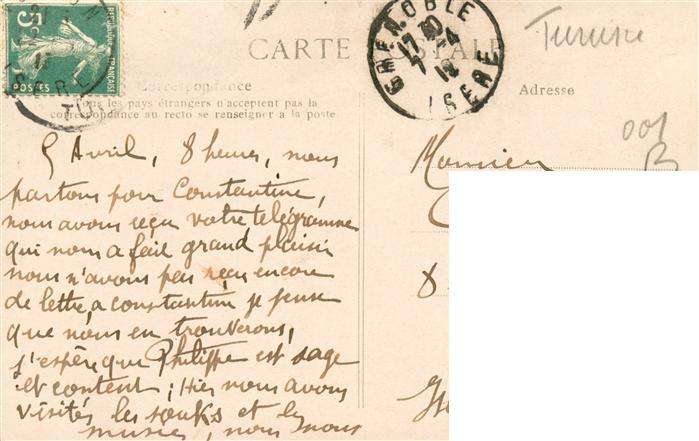 5
POSTES
GRENOBLE
17 30
7 -4
ISERE
CARTE POSTALE
Tunisie
Correspondance
Tous les pays étrangers n'acceptent pas la
correspondance au recto se renseigner à la poste.
Adresse
001
B
5 Avril, 8 heures, nous
partons pour Constantine,
nous avons reçu votre télégramme
qui nous a fait grand plaisir
nous n'avons pas reçu encore
de lettre, a constantine je pense
que nous en trouverons,
j'espère que Philippe est sage
et content ; Hier nous avons
visités les souks et les
musées, nous nous
Monsieur
8